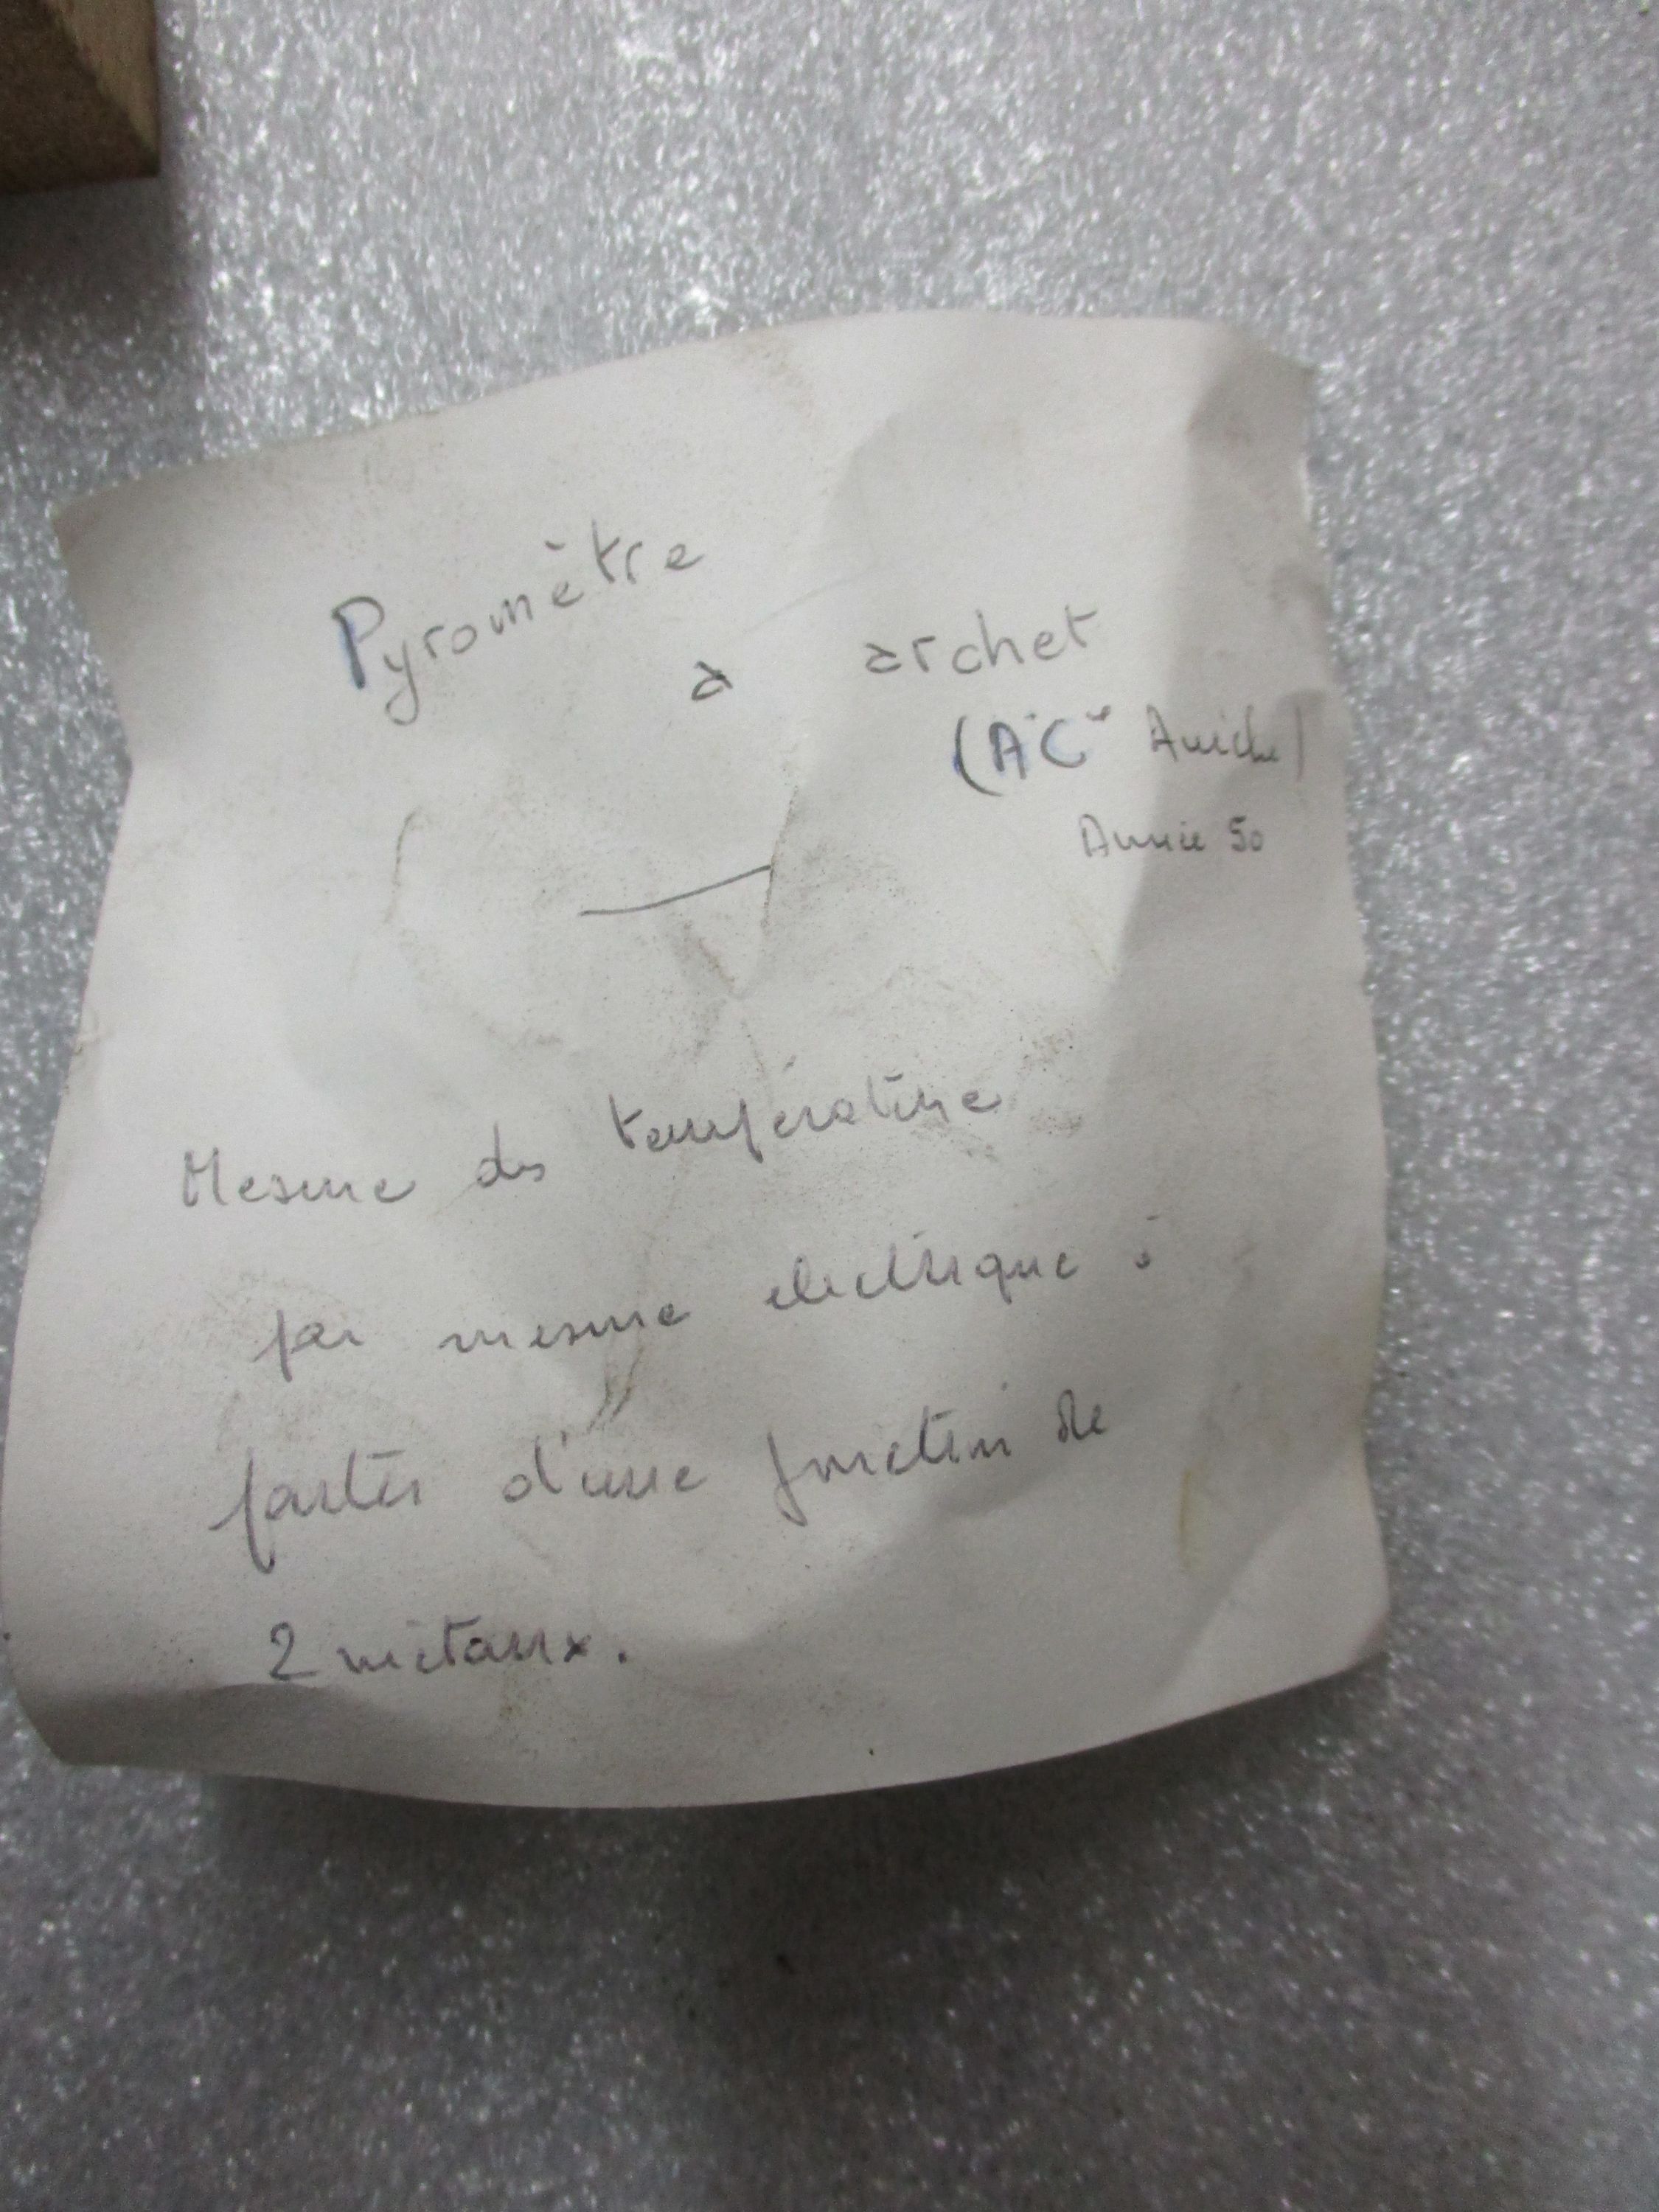 Pyromètre
à archet
(AC Aniche)
Année 50
Mesure des température
par mesure electrique à
partir d'une jonction de
2 métaux.